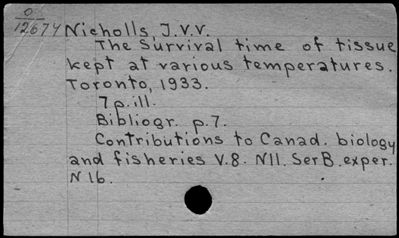 O
12674 Nicholls, J.V.V.
The Survival time of tissue
kept at various temperatures.
Toronto, 1933.
7 p. ill.
Bibliogr. p. 7.
Contributions to Canad. biology
and fisheries V. 8. N11. Ser B. exper.
N 16.